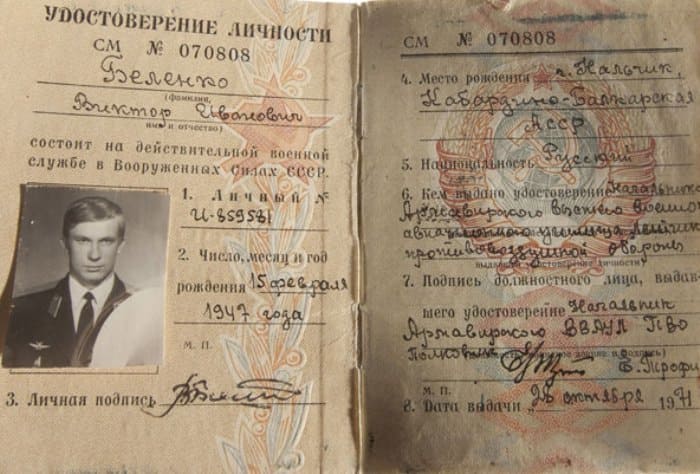 УДОСТОВЕРЕНИЕ ЛИЧНОСТИ
СМ № 070808
Беленко
(фамилия,
Виктор Иванович
имя и отчество)
состоит на действительной военной
службе в Вооруженных Силах СССР.
1. Личный №
И-859581
2. Число, месяц и год
рождения 15 февраля
1947 года
М. П.
3. Личная подпись
СМ № 070808
4. Место рождения г. Нальчик,
Кабардино-Балкарская
АССР
5. Национальность Русский
6. Кем выдано удостоверение Начальник
Армавирского высшего военно
авиационного училища летчик
противовоздушной обороны
7. Подпись должностного лица, выдав-
шего удостоверение Начальник
Армавирского ВВАУЛ ПВО
полковник
Е. Трофи
М. П.
8. Дата выдачи „26 октября 1971